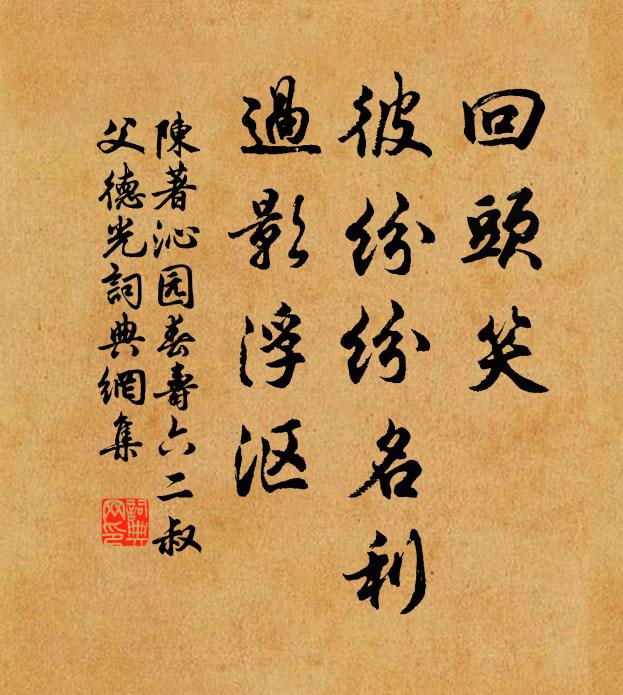 回頭笑
彼紛紛名利
過影浮沤
陳著沁园春壽六二叔
父德光詞典網集
詞典
网印